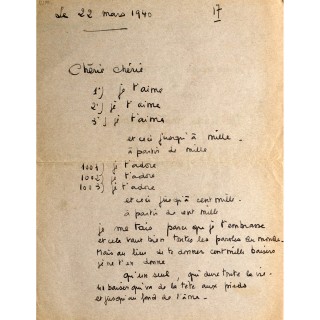 Le 22 mars 1940
17
Chérie chérie
1°) je t'aime
2°) je t'aime
3°) je t'aime
et ceci jusqu'à mille.
à partir de mille
1001) je t'adore
1002) je t'adore
1003) je t'adore
et ceci jusqu'à cent mille.
à partir de cent mille
je me tais, parce que je t'embrasse
et cela vaut bien toutes les paroles du monde.
Mais au lieu de te donner cent mille baisers
je ne t'en donne
qu'un seul, qui dure toute la vie.
Un baiser qui va de la tête aux pieds
et jusqu'au fond de l'âme.